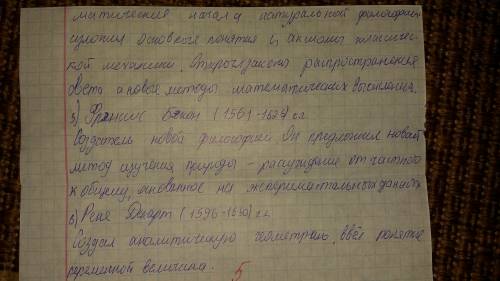 матические начала натуральной философии
изложил основные понятия и аксиомы классичес-
кой механики. Открыл законы распространения
света и новые методы математических вычислений.
5) Фрэнсис Бэкон (1561-1627) г.г.
Создатель новой философии. Он предложил новый
метод изучения природы - рассуждение от частного
к общему, основанное на экспериментальных данных
6) Рене Декарт (1596-1650) г.г.
Создал аналитическую геометрию, ввёл понятие
переменной величины. 5